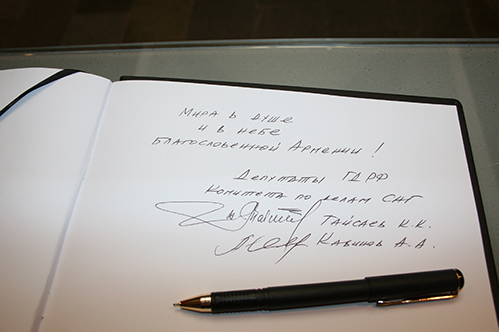 Мира в душе
и в небе
благословенной Армении!
Депутаты ГДРФ
комитета по делам СНГ
Тайсаев К.К.
А.А.